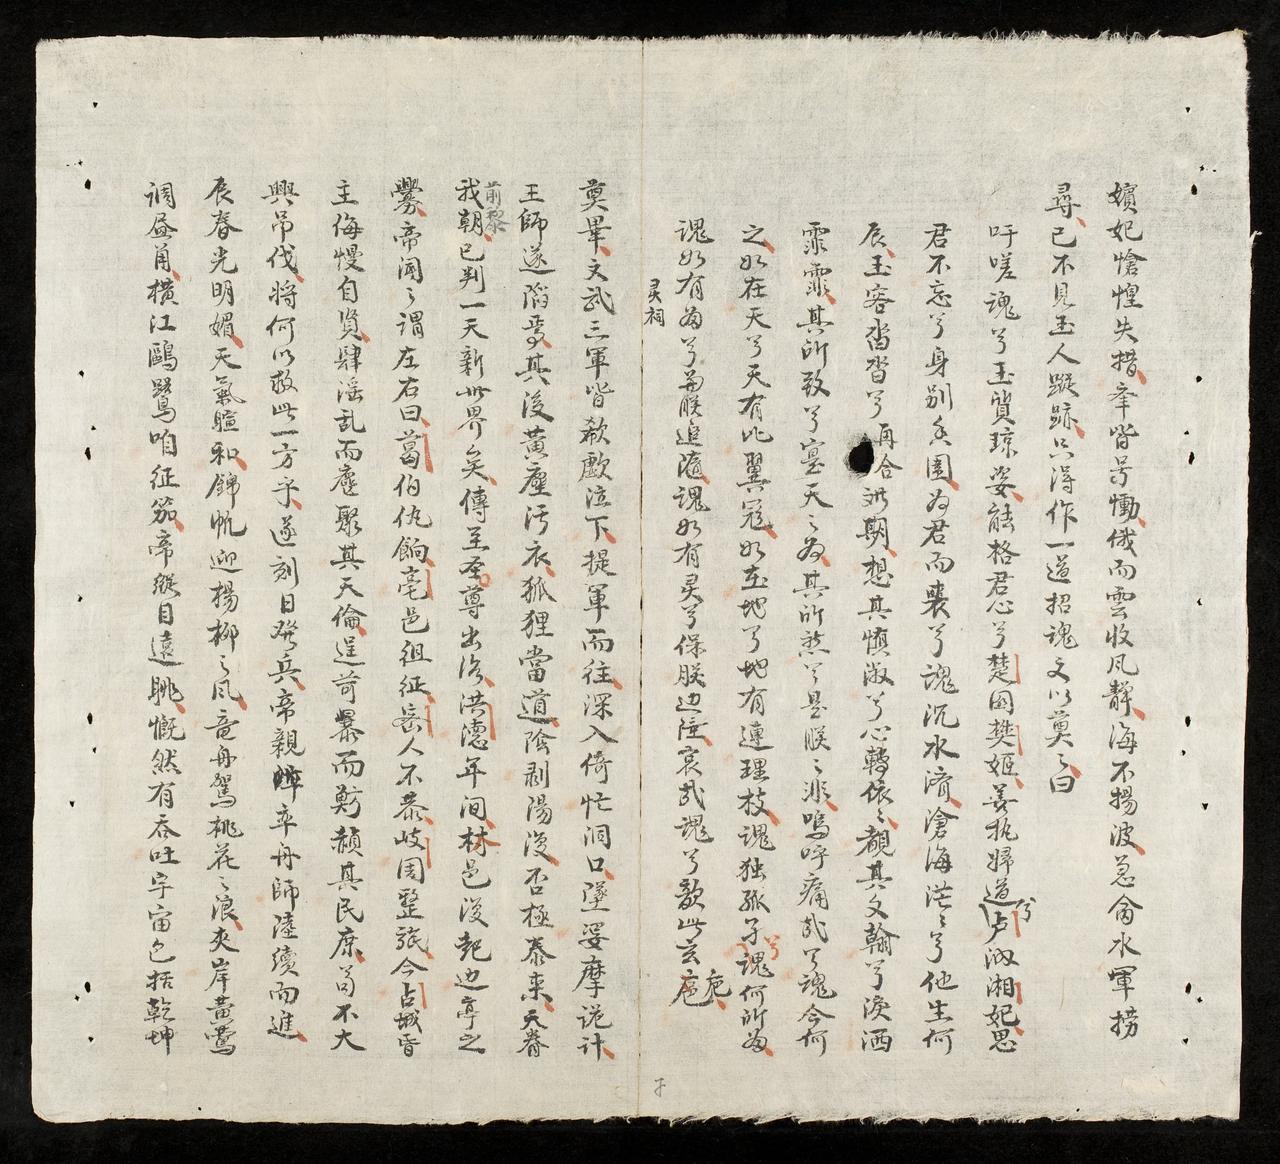 嬪妃愴惶失措牽皆号慟俄而雲收风静海不揚波急令水軍撈
尋已不見玉人蹤跡只得作一道招魂文以奠之曰
吁嗟魂兮玉質琼姿能格君心兮楚國樊姬善执婦道兮卢淑湘妃思
君不忘兮身别乡國为君而喪兮魂沉水濱滄海茫茫兮他生何
辰玉容沓沓兮再合祈期想其慎淑兮心轉依依覩其文翰兮淚洒
霏霏其所致兮寔天之为其所愁兮是朕之非嗚呼痛哉兮魂今何
之如在天兮天有比翼寇如在地兮地有連理枝魂独孤孑兮魂何所为
魂如有为兮为朕追随魂如有灵兮保朕边陲哀哉魂兮歆此玄巵
灵祠
奠畢文武三軍皆欷歔泣下提軍而往深入倚忙洞口墜娑摩诡计
王師遂陷焉其後黄塵汚衣狐狸當道陰剥陽復否極泰来天眷
前黎
我朝已判一天新世界矣傳至圣尊出治洪德年间林邑復起边亭之
釁帝闻之谓左右曰葛伯仇餉亳邑徂征密人不恭岐周整旅今占城昏
主侮慢自賢肆淫乱而麀聚其天倫逞苛暴而魝顏其民庶苟不大
興吊伐将何以救此一方乎遂刻日発兵帝親率舟師陸續而進
辰春光明媚天氣暄和錦帆迎揚柳之风竜舟駕桃花之浪夾岸黄鶯
调昼角横江鷗鷺咱征笳帝縱目遠眺慨然有吞吐宇宙包括乾坤